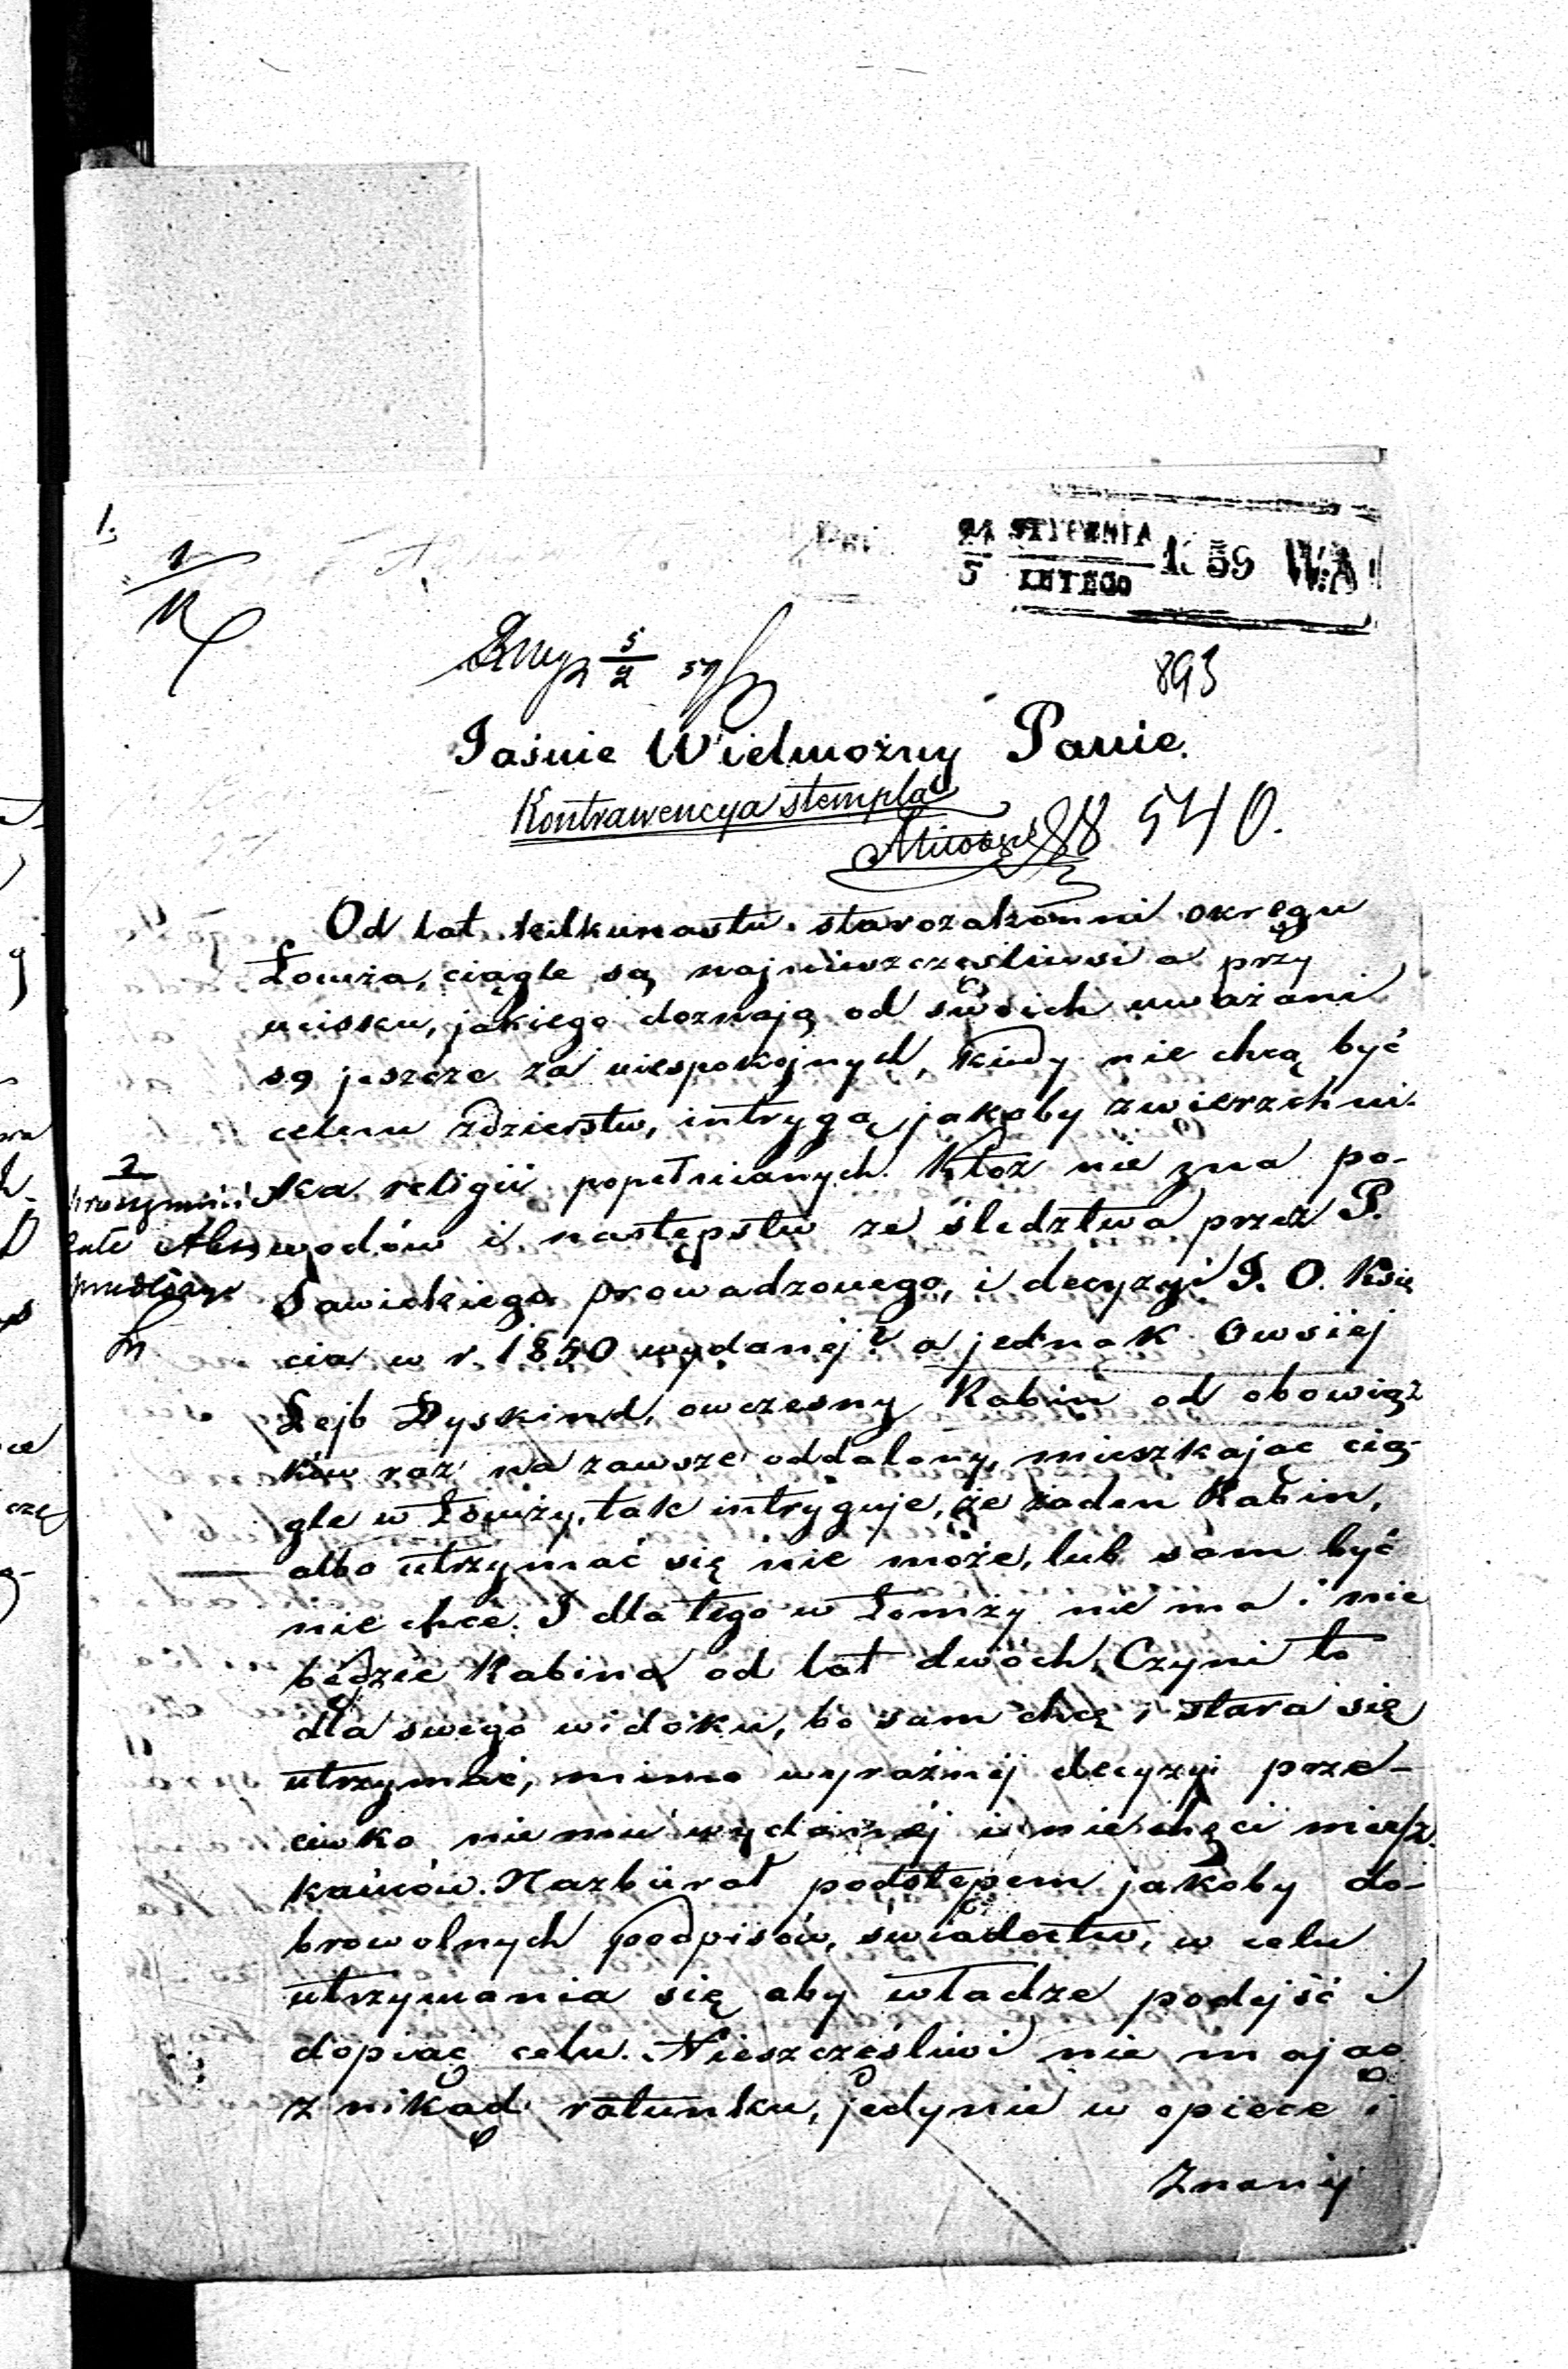 1.
24 STYCZNIA 1859 W:A
5 LUTEGO
5/2 59
893
Jaśnie Wielmożny Panie.
Kontrawencya stempla
88 540.
Od lat kilkunastu starozakonni okręgu
Łomża, ciągle są najnieszczęśliwsi a przy
ucisku, jakiego doznają od swoich uważani
są jeszcze za niespokojnych, kiedy nie chcą być
celem zdzierstw, intrygą jakoby zwierzchni-
ka religii popełnianych. Któż nie zna po-
wodów i następstw ze śledztwa przez P.
Sawickiego prowadzonego, i decyzyi J. O. Księ
cia w r. 1850 wydanej? a jednak Owsiej
Lejb Dyskind, owczesny Rabin od obowiąz
ków raz na zawsze oddalony, mieszkając cią-
gle w Łomży, tak intryguje, że żaden Rabin,
albo utrzymać się nie może, lub sam być
nie chce. I dla tego w Łomży nie ma i nie
będzie Rabina od lat dwóch. Czyni to
dla swego widoku, bo sam chcę i stara się
utrzymać, mimo wyraźnij decyzyi prze-
ciwko niemu wydanéj i niechęci miesz.
kańców. Nazbierał podstępem jakoby do-
browolnych podpisów, świadectw, w celu
utrzymania się aby władze podejść i
dopiąć celu. Nieszczęśliwi nie mając
z nikąd ratunku, jedynie w opiece i
Znanéj